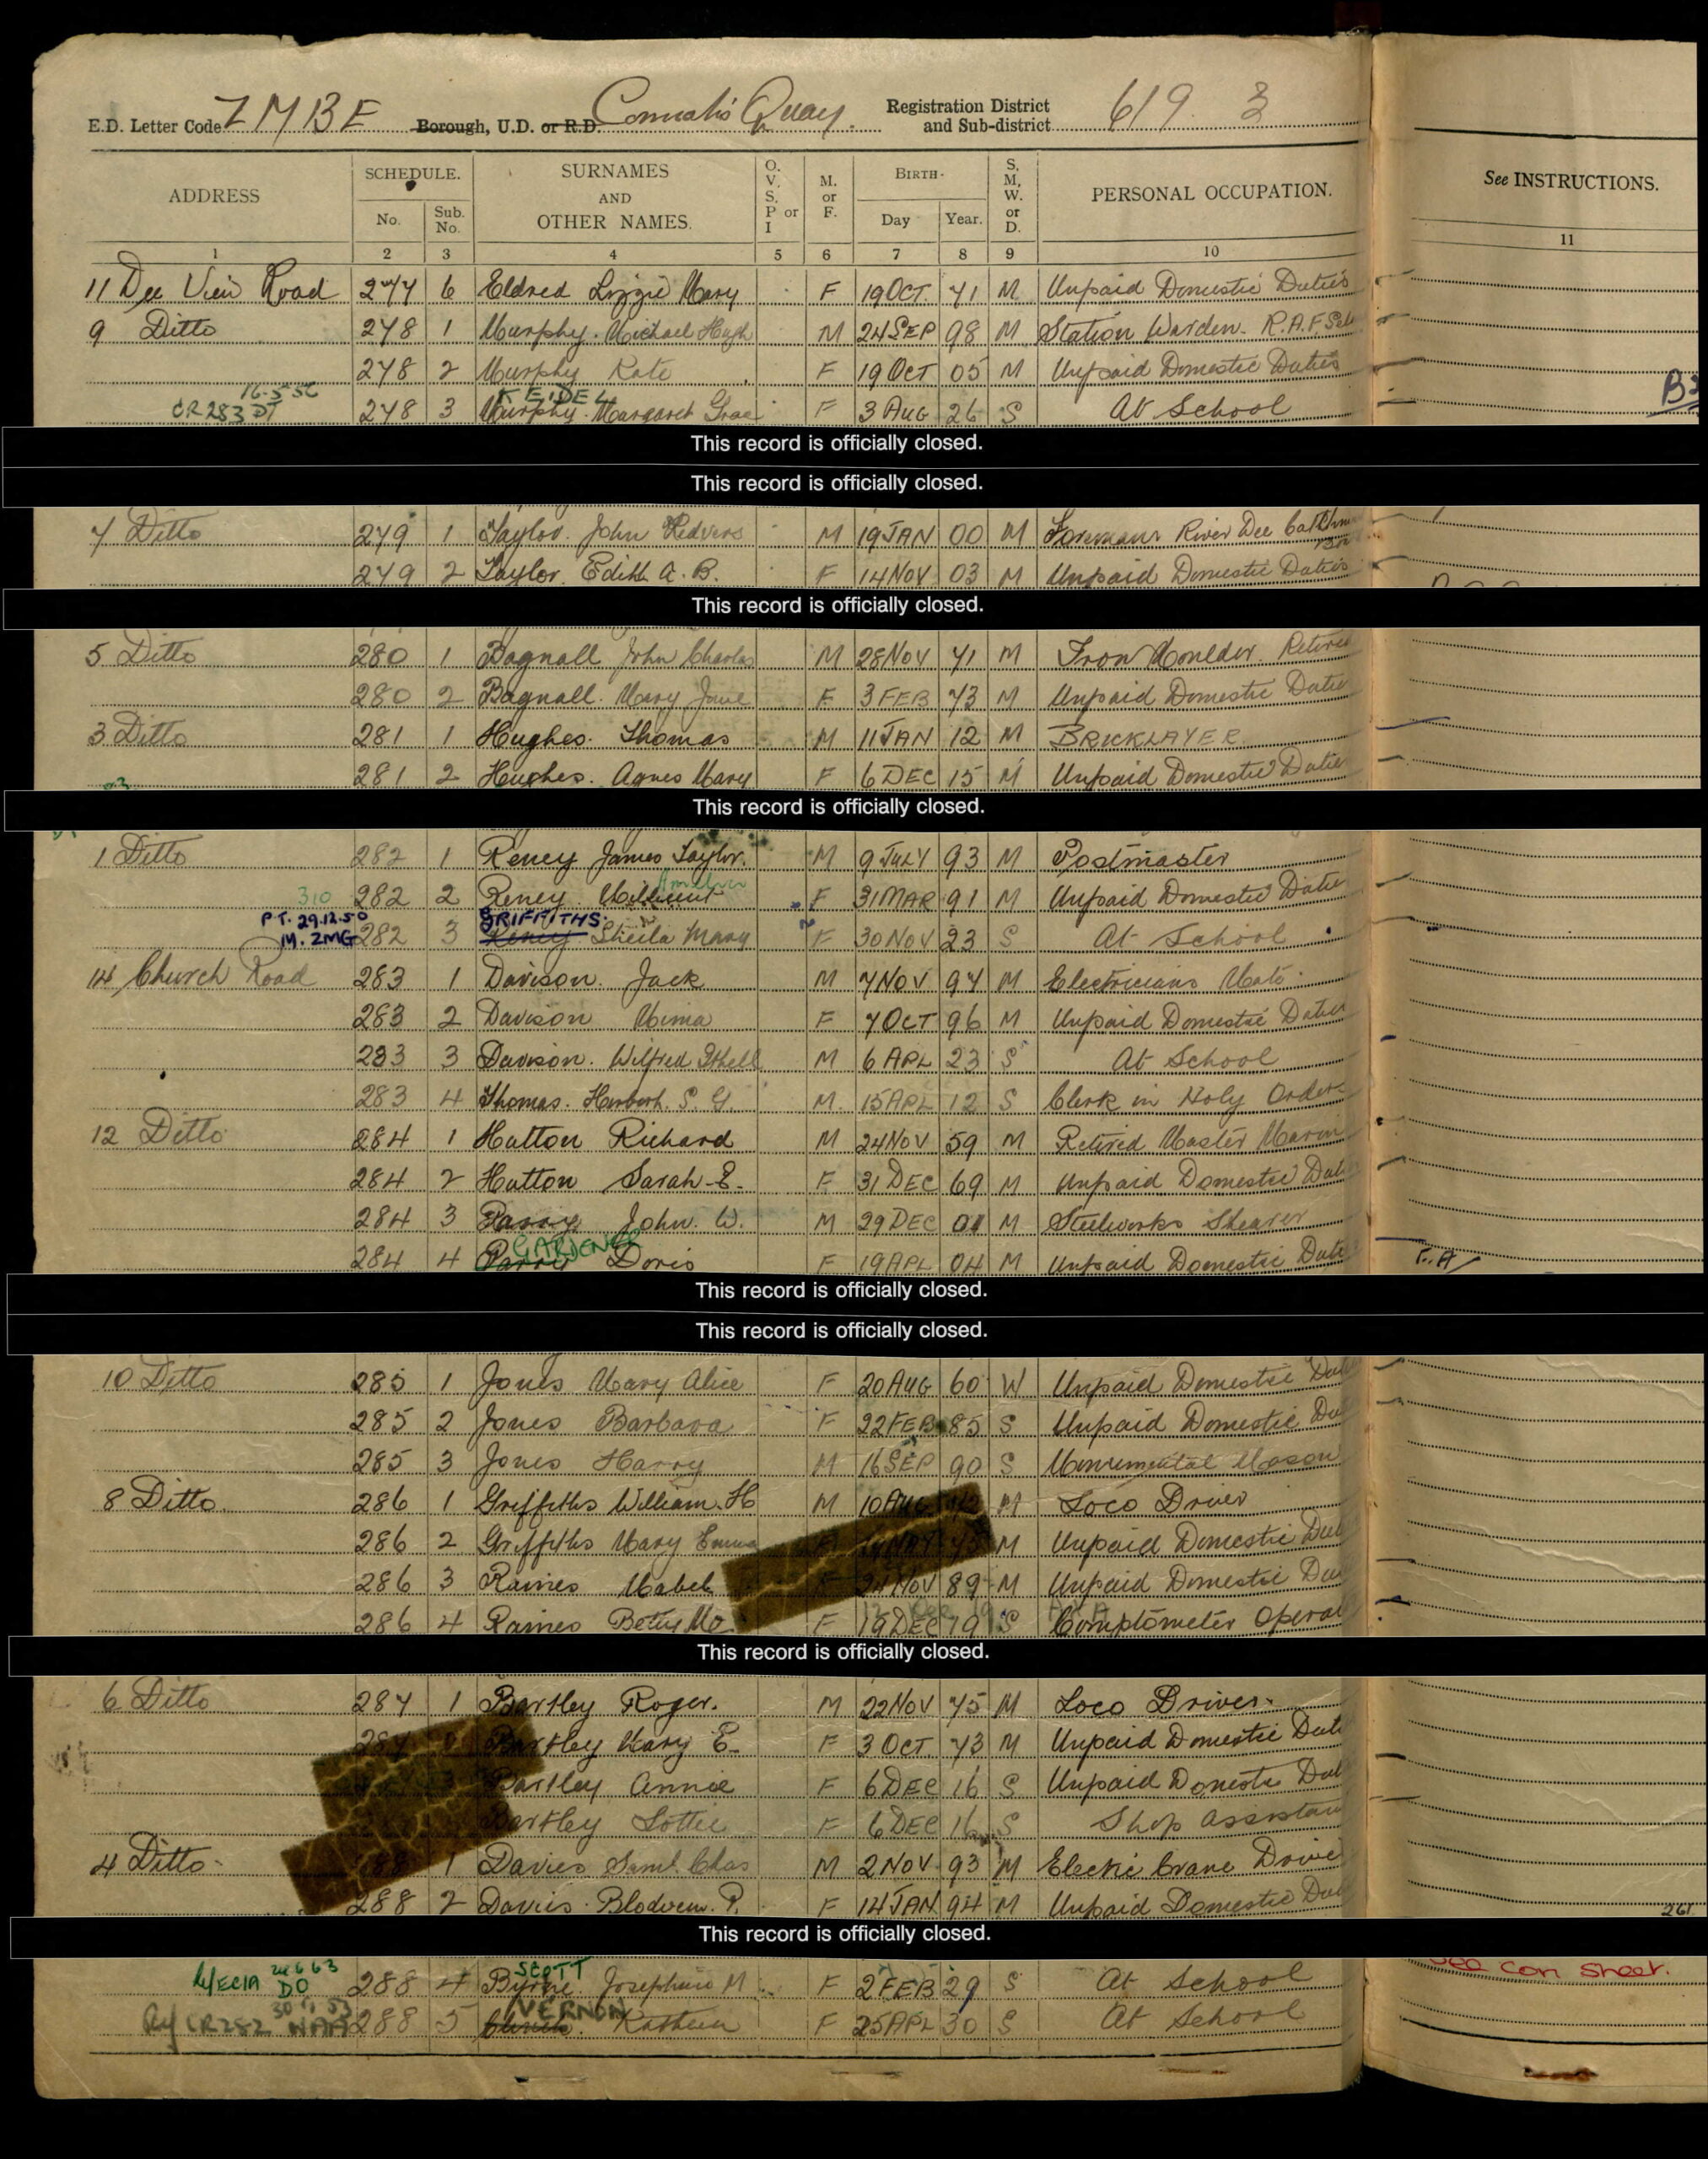 E.D. Letter Code ZMBE Borough, U.D. or R.D. Connah's Quay. Registration District and Sub-district 619 3
ADDRESS SCHEDULE. SURNAMES AND OTHER NAMES. O. V. S. P or I M. or F. BIRTH. S. M. W. or D. PERSONAL OCCUPATION. See INSTRUCTIONS.
No. Sub. No. Day Year.
1 2 3 4 5 6 7 8 9 10 11
11 Dee View Road 277 6 Eldred Lizzie Mary F 19 OCT. 71 M Unpaid Domestic Duties
9 Ditto 278 1 Murphy. Michael Hugh M 24 SEP 98 M Station Warden. R.A.F
278 2 Murphy Kate F 19 OCT 05 M Unpaid Domestic Duties
16-5-50
CR283 DT 278 3 Murphy. Margaret Grace F 3 AUG 26 S At School
This record is officially closed.
This record is officially closed.
7 Ditto 279 1 Taylor. John Redvers M 19 JAN 00 M Foreman River Dee
279 2 Taylor. Edith A. B. F 14 NOV 03 M Unpaid Domestic Duties
This record is officially closed.
5 Ditto 280 1 Bagnall John Charles M 28 NOV 71 M Iron Moulder. Retired
280 2 Bagnall. Mary Jane F 3 FEB 73 M Unpaid Domestic Dutie
3 Ditto 281 1 Hughes. Thomas M 11 JAN 12 M BRICKLAYER
281 2 Hughes. Agnes Mary F 6 DEC 15 M Unpaid Domestic Dutie
This record is officially closed.
1 Ditto 282 1 Reney James Taylor. M 9 JULY 93 M Postmaster
310 282 2 Reney. Millicent F 31 MAR 91 M Unpaid Domestic Dutie
P.T. 29.12.50 GRIFFITHS.
M. ZMG 282 3 Reney Sheila Mary F 30 NOV 23 S At School
14 Church Road 283 1 Davison. Jack M 7 NOV 97 M Electricians Mate
283 2 Davison Mima F 7 OCT 96 M Unpaid Domestic Duties
283 3 Davison. Wilfred Ithell M 6 APL 23 S At School
283 4 Thomas. Herbert. S. G. M. 15 APL 12 S Clerk in Holy Orders
12 Ditto 284 1 Hutton Richard M 24 NOV 59 M Retired Master Marin
284 2 Hutton Sarah E. F 31 DEC 69 M Unpaid Domestic Dut
284 3 Parry John. W. M 29 DEC 01 M Steelworks Shearer
GARDENER
284 4 Parry Doris F 19 APL 04 M Unpaid Domestic Dut F.A
This record is officially closed.
This record is officially closed.
10 Ditto 285 1 Jones Mary Alice F 20 AUG 60 W Unpaid Domestic Dut
285 2 Jones Barbara F 22 FEB 85 S Unpaid Domestic Dut
285 3 Jones Harry M 16 SEP 90 S Monumental Mason
8 Ditto. 286 1 Griffiths William. H M 10 AUG M Loco Driver
286 2 Griffiths Mary Emma M Unpaid Domestic Dut
286 3 Raines Mabel F NOV 89 M Unpaid Domestic Dut
286 4 Raines Betty Mo F 19 DEC 19 S Comptometer Operat
This record is officially closed.
6 Ditto 287 1 Bartley Roger. M 22 NOV 75 M Loco Driver.
287 2 Bartley Mary E. F 3 OCT. 73 M Unpaid Domestic Dut
3 Bartley Annie F 6 DEC 16 S Unpaid Domestic Dut
Bartley Lottie F 6 DEC 16 S Shop Assistan
4 Ditto 288 1 Davies Saml. Chas M 2 NOV 93 M Electric Crane Drive
288 2 Davies. Blodwen. P. F 14 JAN 94 M Unpaid Domestic Dut 261
This record is officially closed.
SCOTT
DO 288 4 Byrne Josephine M F 2 FEB 29 S At School See Con Sheet.
VERNON
CR282 288 5 Kathleen F 25 APL 30 S At School